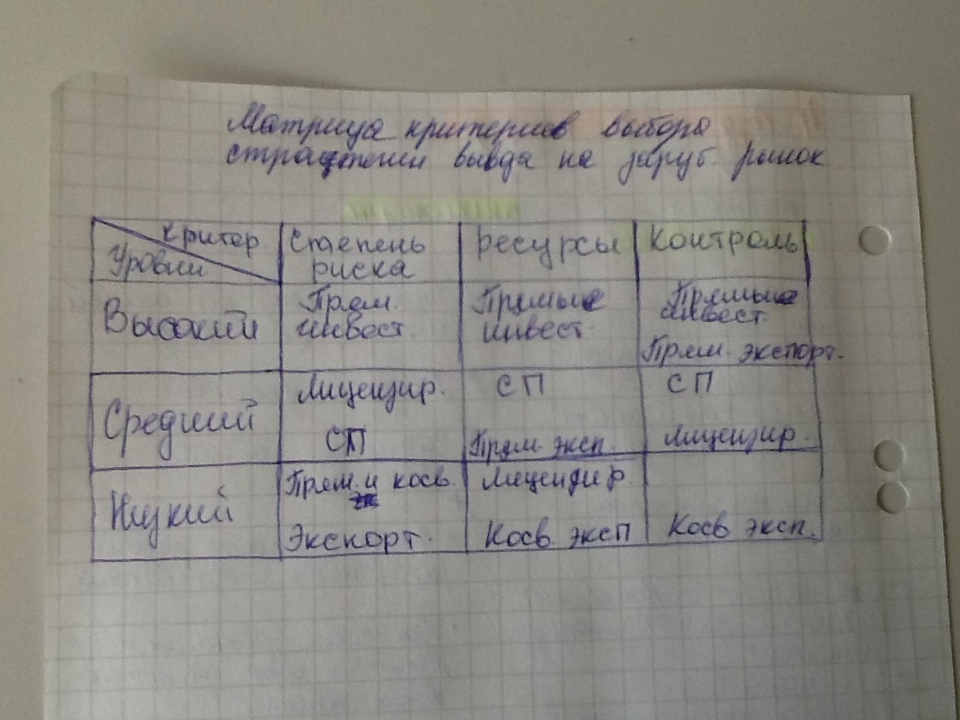 Матрица критериев выбора
стратегии вывда на заруб. рынок
Критер Степень Ресурсы Контроль
Уровни риска
Высокий Прям. Прямые Прямые
инвест. инвест. инвест.
Прям. экспорт.
Средний Лицензир. СП СП
СП Прям. эксп. Лицензир.
Низкий Прям. и косв. Лицензир
Экспорт. Косв эксп Косв эксп.